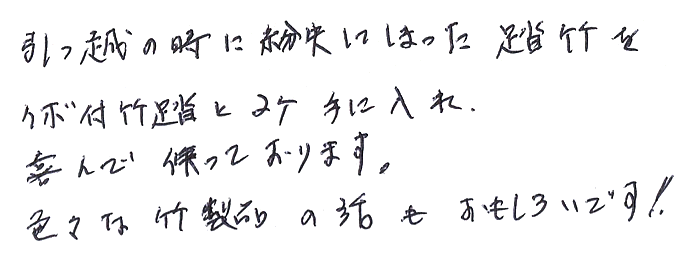 引っ越の時に紛失してしまった 踏竹を
イボ付竹踏と2ケ手に入れ.
喜んで使っております。
色々な竹製品の話もおもしろいです!!